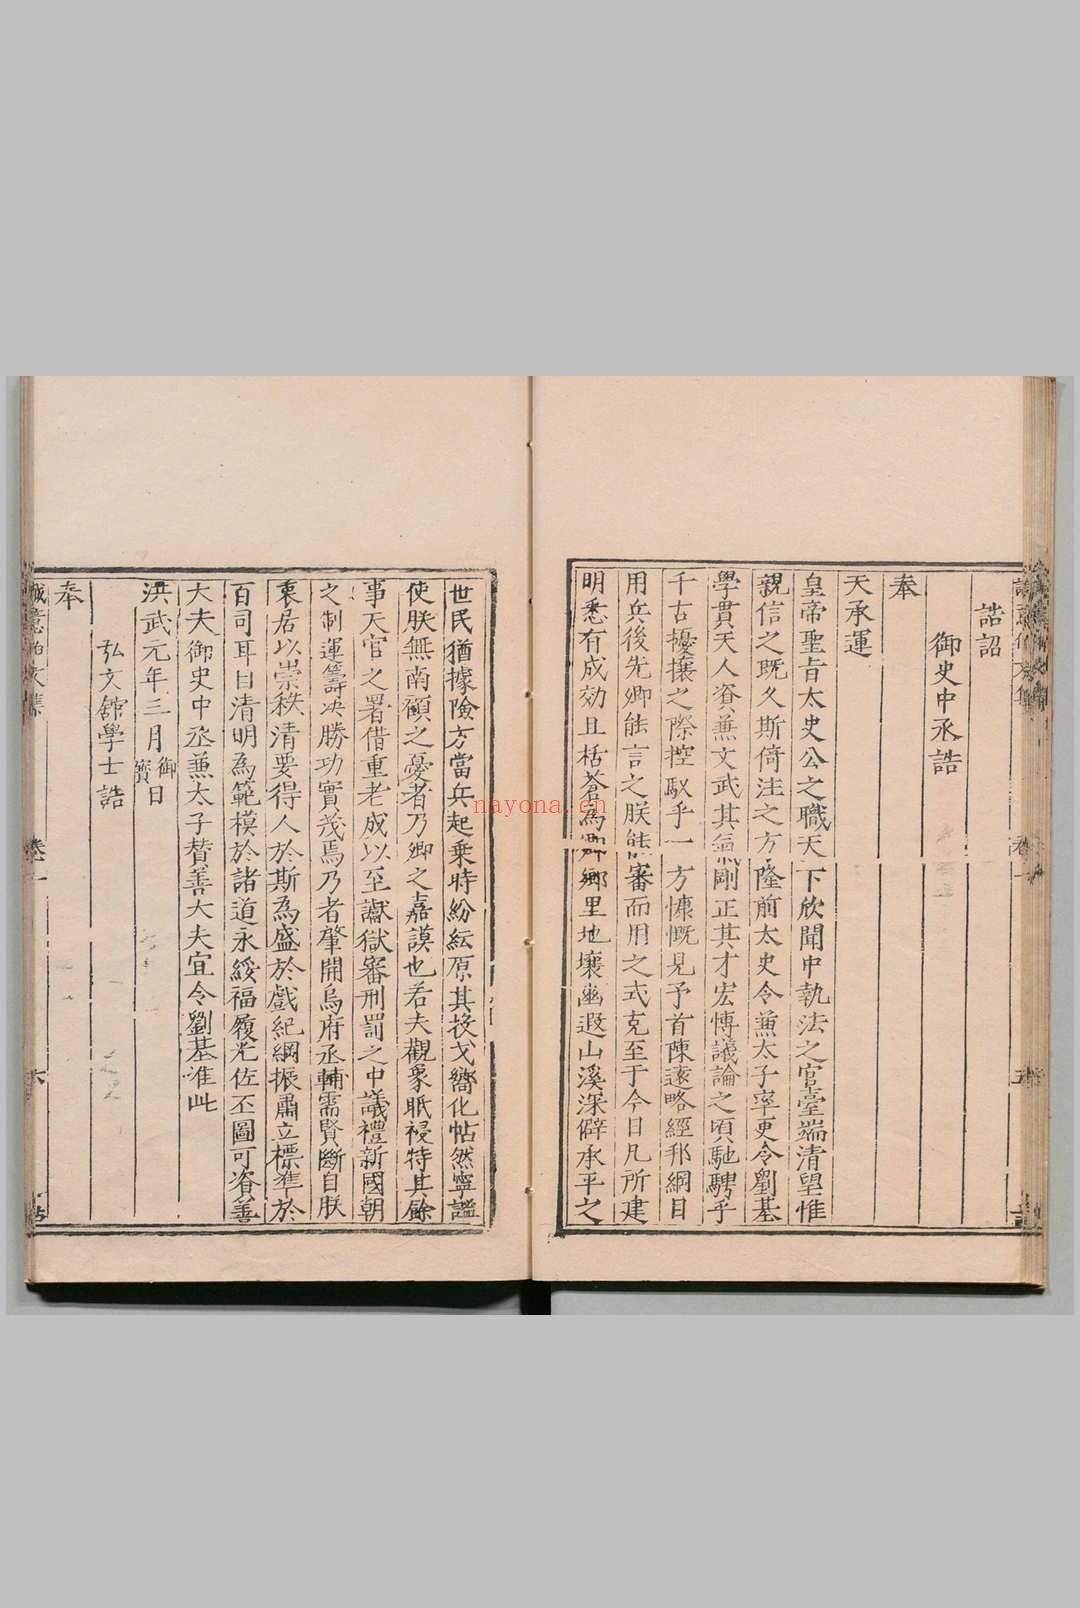 誥詔
御史中丞誥
奉
天承運
皇帝聖旨太史公之職天下欣聞中執法之官臺端清望惟
親信之旣久斯倚注之方隆前太史令兼太子率更令劉基
學貫天人資兼文武其氣剛正其才宏愽議論之頃馳騁乎
千古擾攘之際控馭乎一方慷慨見予首陳遠略經邦綱目
用兵後先卿能言之朕能審而用之式克至于今日凡所建
明悉有成効且栝蒼爲卿鄉里地壤幽遐山溪深僻承平之
世民猶據險方當兵起乗時紛紜原其投戈嚮化帖然寧謐
使朕無南顧之憂者乃卿之嘉謨也若夫觀象眡祲特其餘
事天官之署借重老成以至讞獄審刑罰之中議禮新國朝
之制運籌决勝功實茂焉乃者肇開烏府丞輔需賢斷自朕
衷居以崇秩清要得人於斯爲盛於戲紀綱振肅立標凖於
百司耳目清明爲範模於諸道永綏福履光佐丕圖可資善
大夫御史中丞兼太子賛善大夫宜令劉基准此
洪武元年三月御寶日
弘文館學士誥
奉
誠意伯文集
卷一
六
nayona.cn